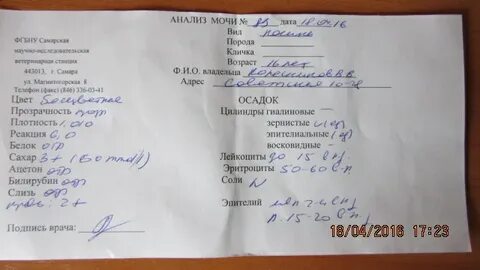 АНАЛИЗ МОЧИ № 85 дата 18.04.16
ФГБНУ Самарская
научно-исследовательская
ветеринарная станция
443013, г. Самара
ул. Магнитогорская 8
Телефон (факс) (846) 336-03-41
Вид кошка
Порода
Кличка
Возраст 16 лет
Ф.И.О. владельца В.В.
Адрес Советская
Цвет бесцветная
Прозрачность
Плотность 1,010
Реакция 6,0
Белок отр
Сахар 3+ (50 mmol/l)
Ацетон отр
Билирубин отр
Слизь отр
кровь: 2+
Подпись врача:
ОСАДОК
Цилиндры гиалиновые -
зернистые (ед)
эпителиальные (ед)
восковидные -
Лейкоциты до 15 в п/
Эритроциты 50-60 в п/
Соли N
Эпителий
п. 15-20 в п/
18/04/2016 17:23